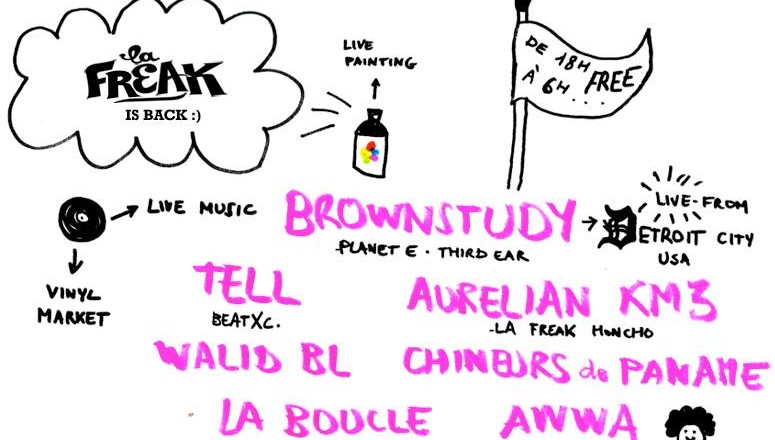 La
FREAK
IS BACK :)
LIVE
PAINTING
DE 18H
À 6H.... FREE
LIVE MUSIC
VINYL
MARKET
BROWNSTUDY
PLANET E. THIRD EAR
LIVE-FROM
DETROIT CITY
USA
TELL
BEATXC.
AURELIAN KM3
-LA FREAK HONCHO
WALID BL
CHINEURS de PANAME
LA BOUCLE
AWWA